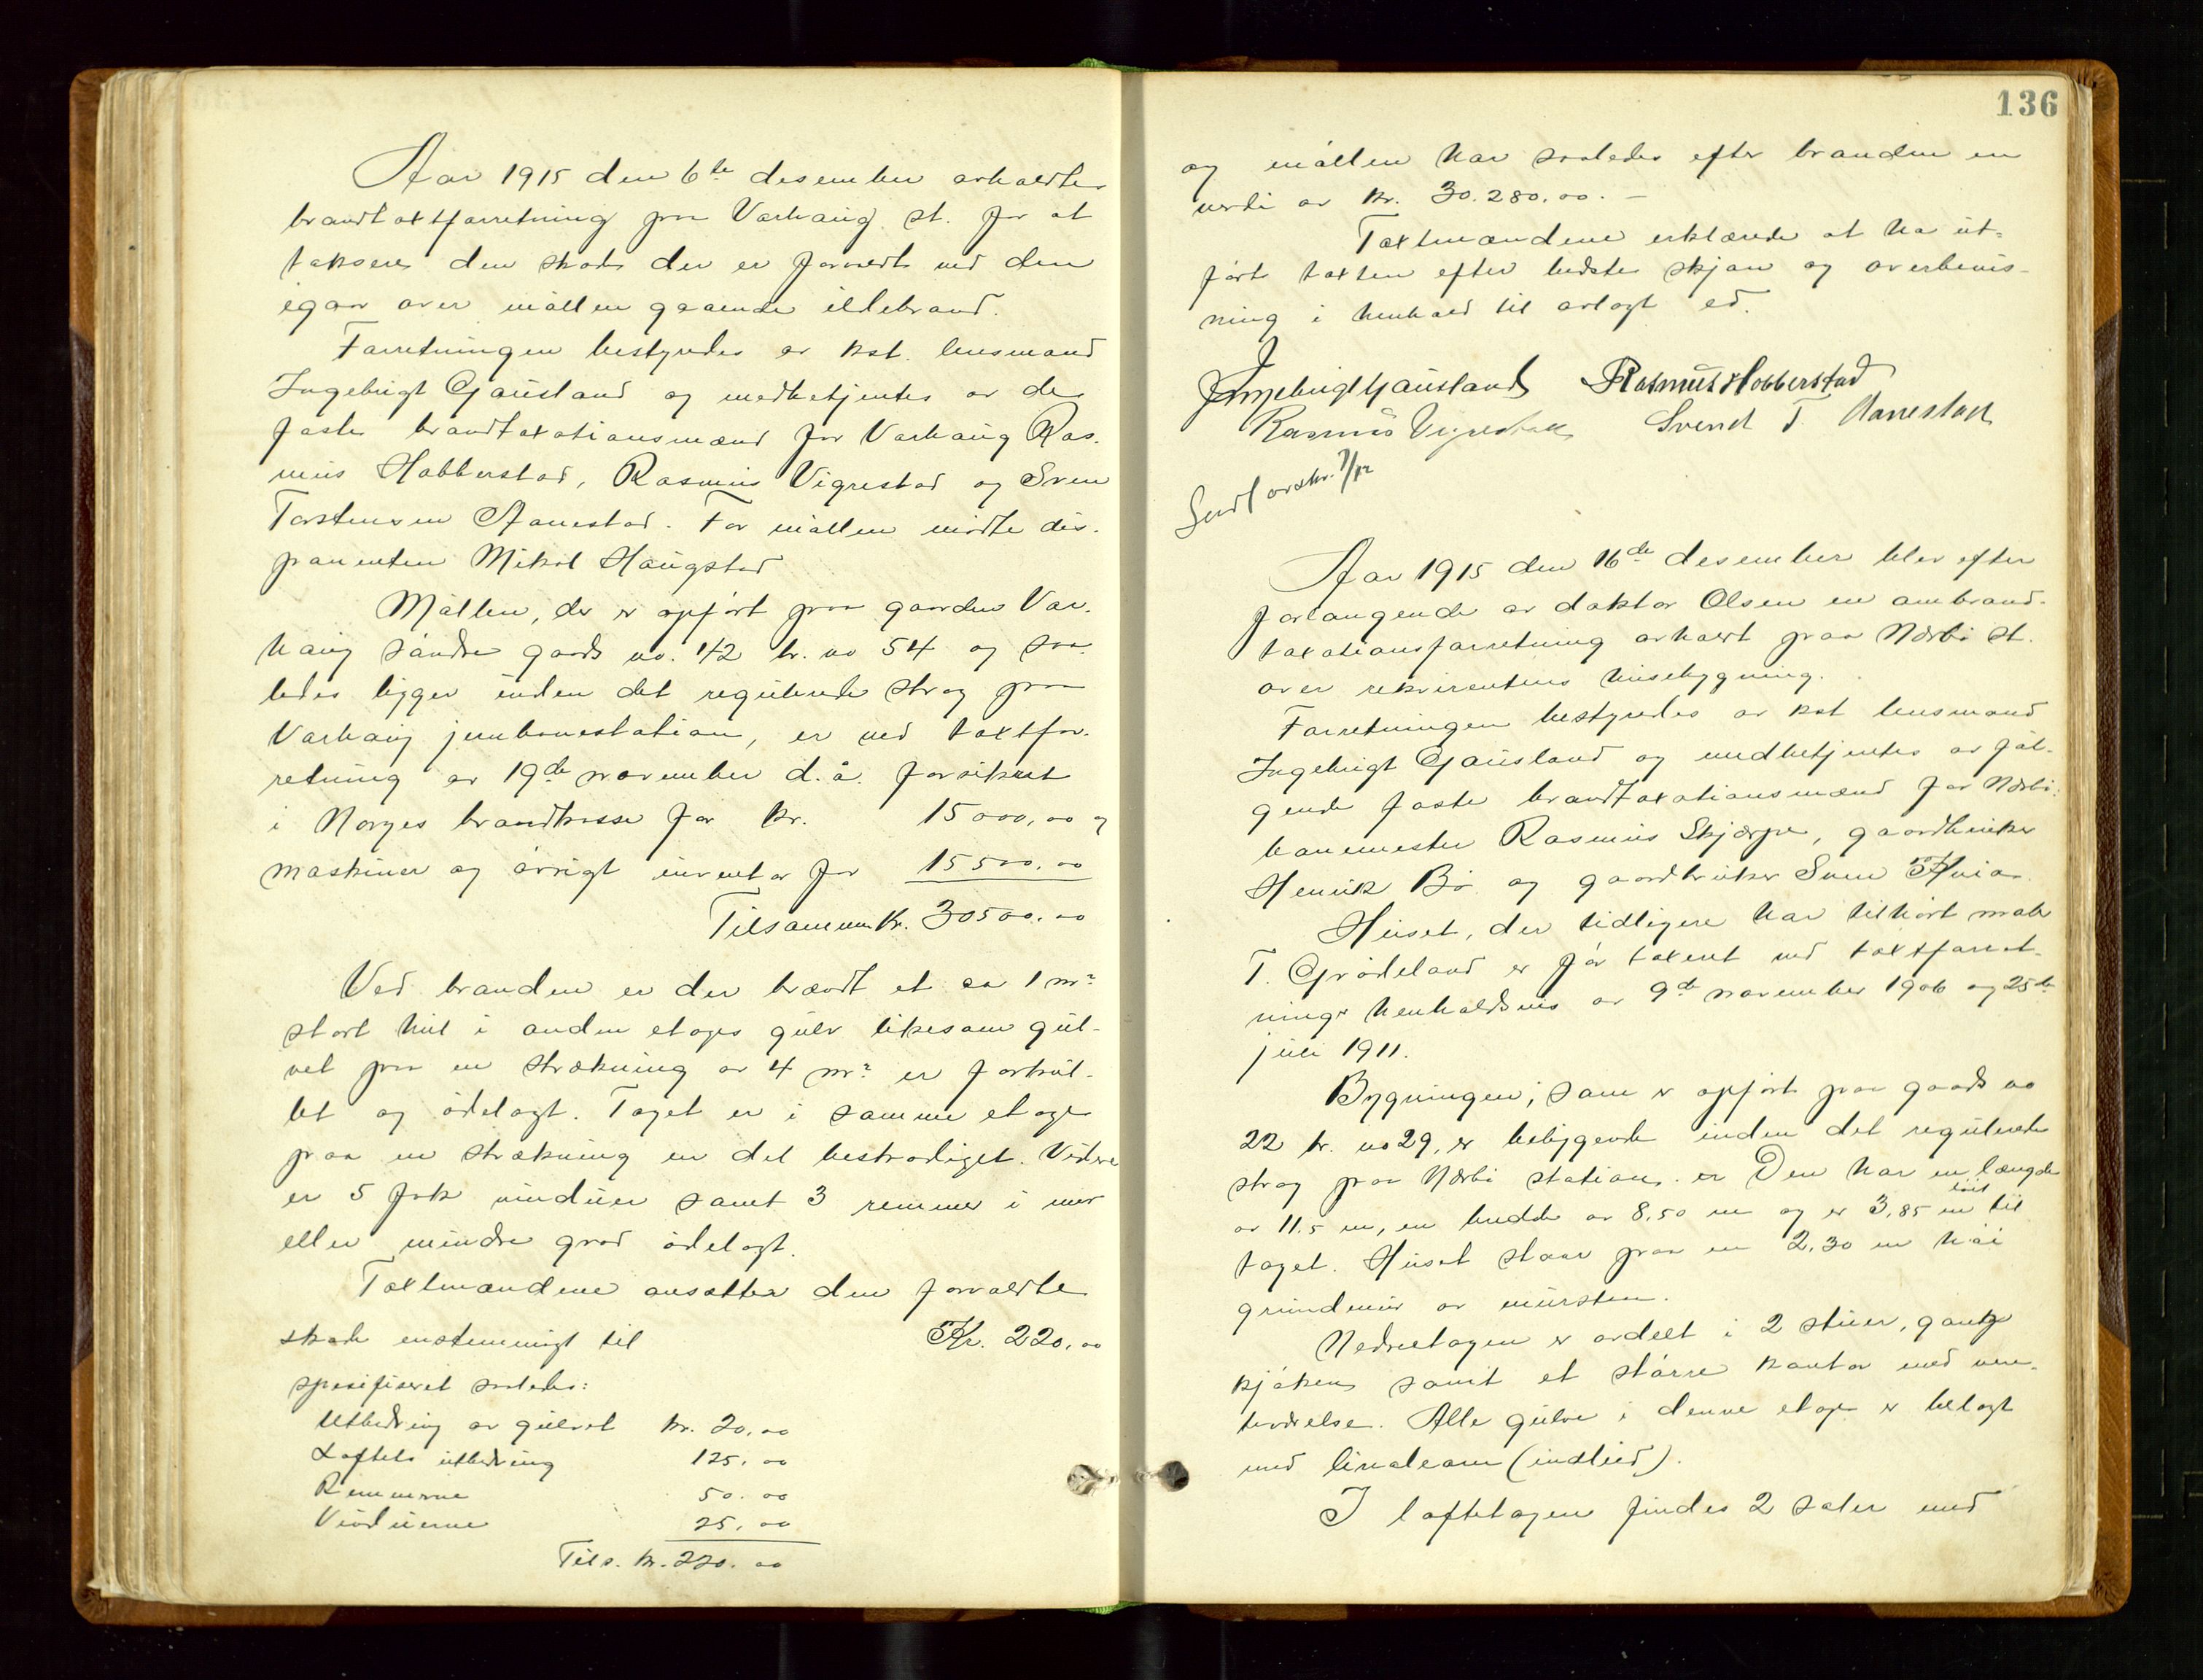 Aar 1915 den 6te desember avholdtes
brandtakstforretning paa Varhaug st. for at
taksere den skade der er forvoldt ved den
igaar over møllen gaaende ildebrand.
Forretningen bestyredes av kst. lensmand
Ingebrigt Gausland og medbetjentes av de
faste brandtaxationsmænd for Varhaug Ras-
mus Hobberstad, Rasmus Vigrestad og Sven
Torstensen Aanestad. For møllen møtte dis-
ponenten Mikal Haugstad
Møllen, der er opført paa gaarden Var-
haug søndre gaards no. 42 br. no 54 og saa-
ledes ligger inden det regulerede strøg paa
Varhaug jernbanestation, er ved takstfor-
retning av 19de november d.å. forsikret
i Norges brandkasse for kr. 15000,00 og
maskiner og øvrigt inventar for 15500.00
Tilsammen kr. 30500.00
Ved branden er der brændt et ca 1 m²
stort hul i anden etages gulv likesom gul-
vet paa en strækning av 4 m² er forkul-
let og ødelagt. Taget er i samme etage
paa en strækning en del beskadiget. Videre
er 5 fok vinduer samt 3 remmer i mer
eller mindre grad ødelagt.
Taxtmændene ansætter den forvoldte
skade enstemmigt til Kr. 220,00
spesifiseret saaledes:
Utbedring av gulvet kr. 20,00
Loftets utbedring 125,00
Remmerne 50.00
Vinduerne 25,00
Tils. kr. 220.00
136
og møllen har saaledes efter branden en
verdi av kr. 30.280.00.-
Taxtmændene erklærede at ha ut-
ført taxten efter bedste skjøn og overbevis-
ning i henhold til avlagt ed.
Ingebrigt Gausland Rasmus Hobberstad
Rasmus Vigrestad Svend T Aanestad
Sendt avskr. 7/12
Aar 1915 den 16de desember blev efter
forlangende av doktor Olsen en ombrand-
taxationsforretning avholdt paa Nærbø st.
over rekvirentens husebygning.
Forretningen bestyredes av kst lensmand
Ingebrigt Gausland og medbetjentes av føl-
gende faste brandtaxationsmænd for Nærbø:
banemester Rasmus Skjærpe, gaardbruker
Henrik Bø og gaardbruker Sven Hvia
Huset, der tidligere har tilhørt maler
T. Grødeland er før taxeret ved takstforret-
ninger henholdsvis av 9de november 1906 og 25de
juli 1911.
Bygningen, som er opført paa gaards no
22 br. no 29, er beliggende inden det regulerede
strøg paa Nærbø station. er Den har en længde
av 11.5 m, en bredde av 8,50 m og er 3,85 m høit til
taget. Huset staar paa en 2,30 m høi
grundmur av mursten.
Nedreetagen er avdelt i 2 stuer, gang
kjøken samt et større kontor med vente-
værelse. Alle gulve i denne etage er belagt
med linoleum (indlied).
I loftetagen findes 2 saler med